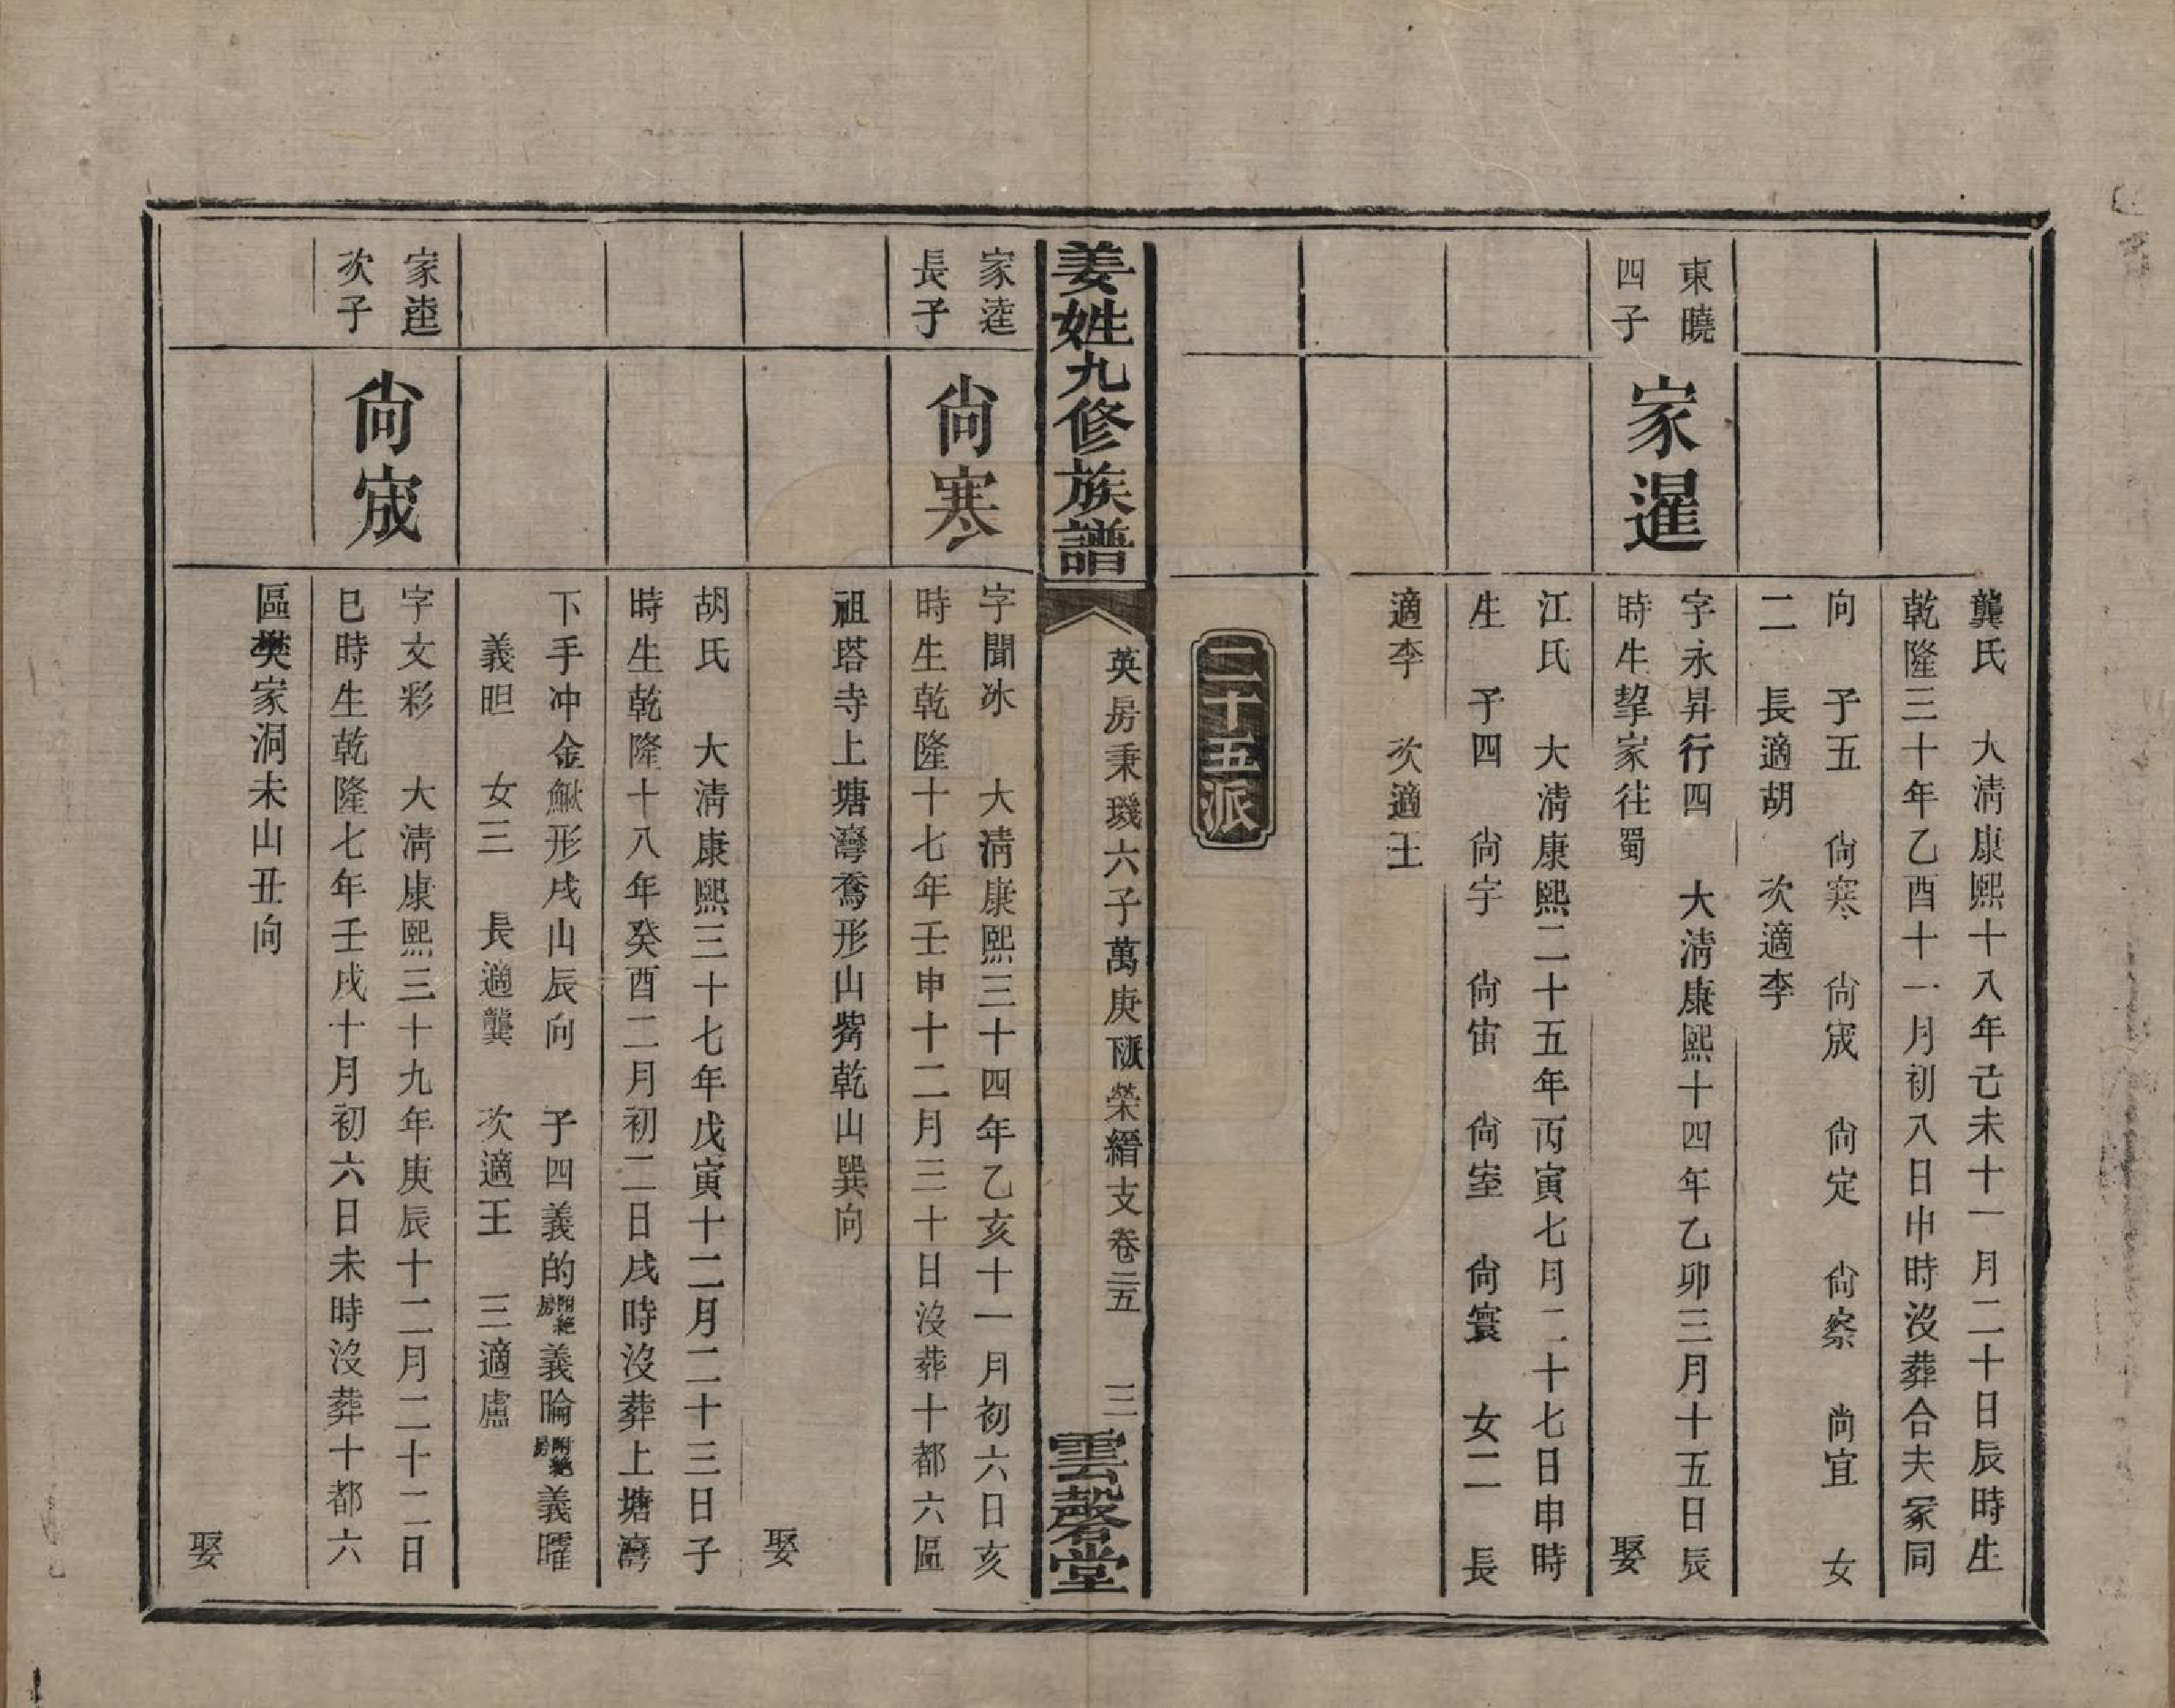 龔氏　大清康熙十八年己未十一月二十日辰時生
乾隆三十年乙酉十一月初八日申時沒葬合夫冢同
向　子五　尙寒　尙宬　尙定　尙察　尙宜　女
二　長適胡　次適李
東曉
四子
家暹
字永昇行四　大清康熙十四年乙卯三月十五日辰
時生挈家往蜀　娶
江氏　大清康熙二十五年丙寅七月二十七日申時
生　子四　尙宇　尙宙　尙室　尙寰　女二　長
適李　次適王
二十五派
姜姓九修族譜
英房秉璣六子萬庚陬榮縉支卷二五　三
雲磬堂
家逵
長子
尙寒
字聞冰　大清康熙三十四年乙亥十一月初六日亥
時生乾隆十七年壬申十二月三十日沒葬十都六區
祖塔寺上塘灣鴦形山觜乾山巽向
娶
胡氏　大清康熙三十七年戊寅十二月二十三日子
時生乾隆十八年癸酉二月初二日戌時沒葬上塘灣
下手冲金鰍形戌山辰向　子四義的附絕房義䑳附絕房義曜
義昍　女三　長適龔　次適王　三適盧
家逵
次子
尙宬
字文彩　大清康熙三十九年庚辰十二月二十二日
巳時生乾隆七年壬戌十月初六日未時沒葬十都六
區樊家洞未山丑向
娶